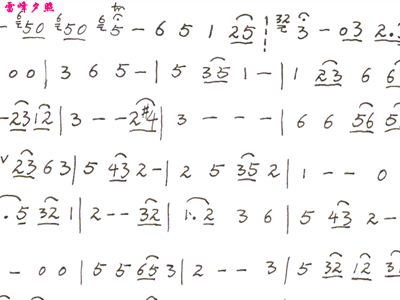 雷峰夕照
- 6 50 6 50 6 5 - 6 5 1 25 ¦ 32 3 - 03 2.3
- 0 0 | 3 6 5 - | 5 35 1 - | 1 23 6 6
- 23 12 | 3 - - 2#4 | 3 - - - | 6 6 56 5
v 23 6 3 | 5 43 2 - | 2 5 35 2 | 1 - - 0
. 5 32 1 | 2 - - 32 | 1. 2 3 6 | 5 43 2 -
- 0 0 | 5 5 65 3 | 2 - - 3 | 5 32 12 3